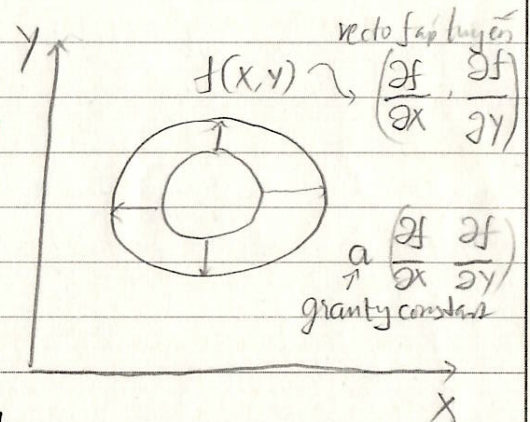 vectơ fáp tuyến
Y
f(X,Y)
(∂f/∂X, ∂f/∂Y)
a (∂f/∂X ∂f/∂Y)
granty constant
X